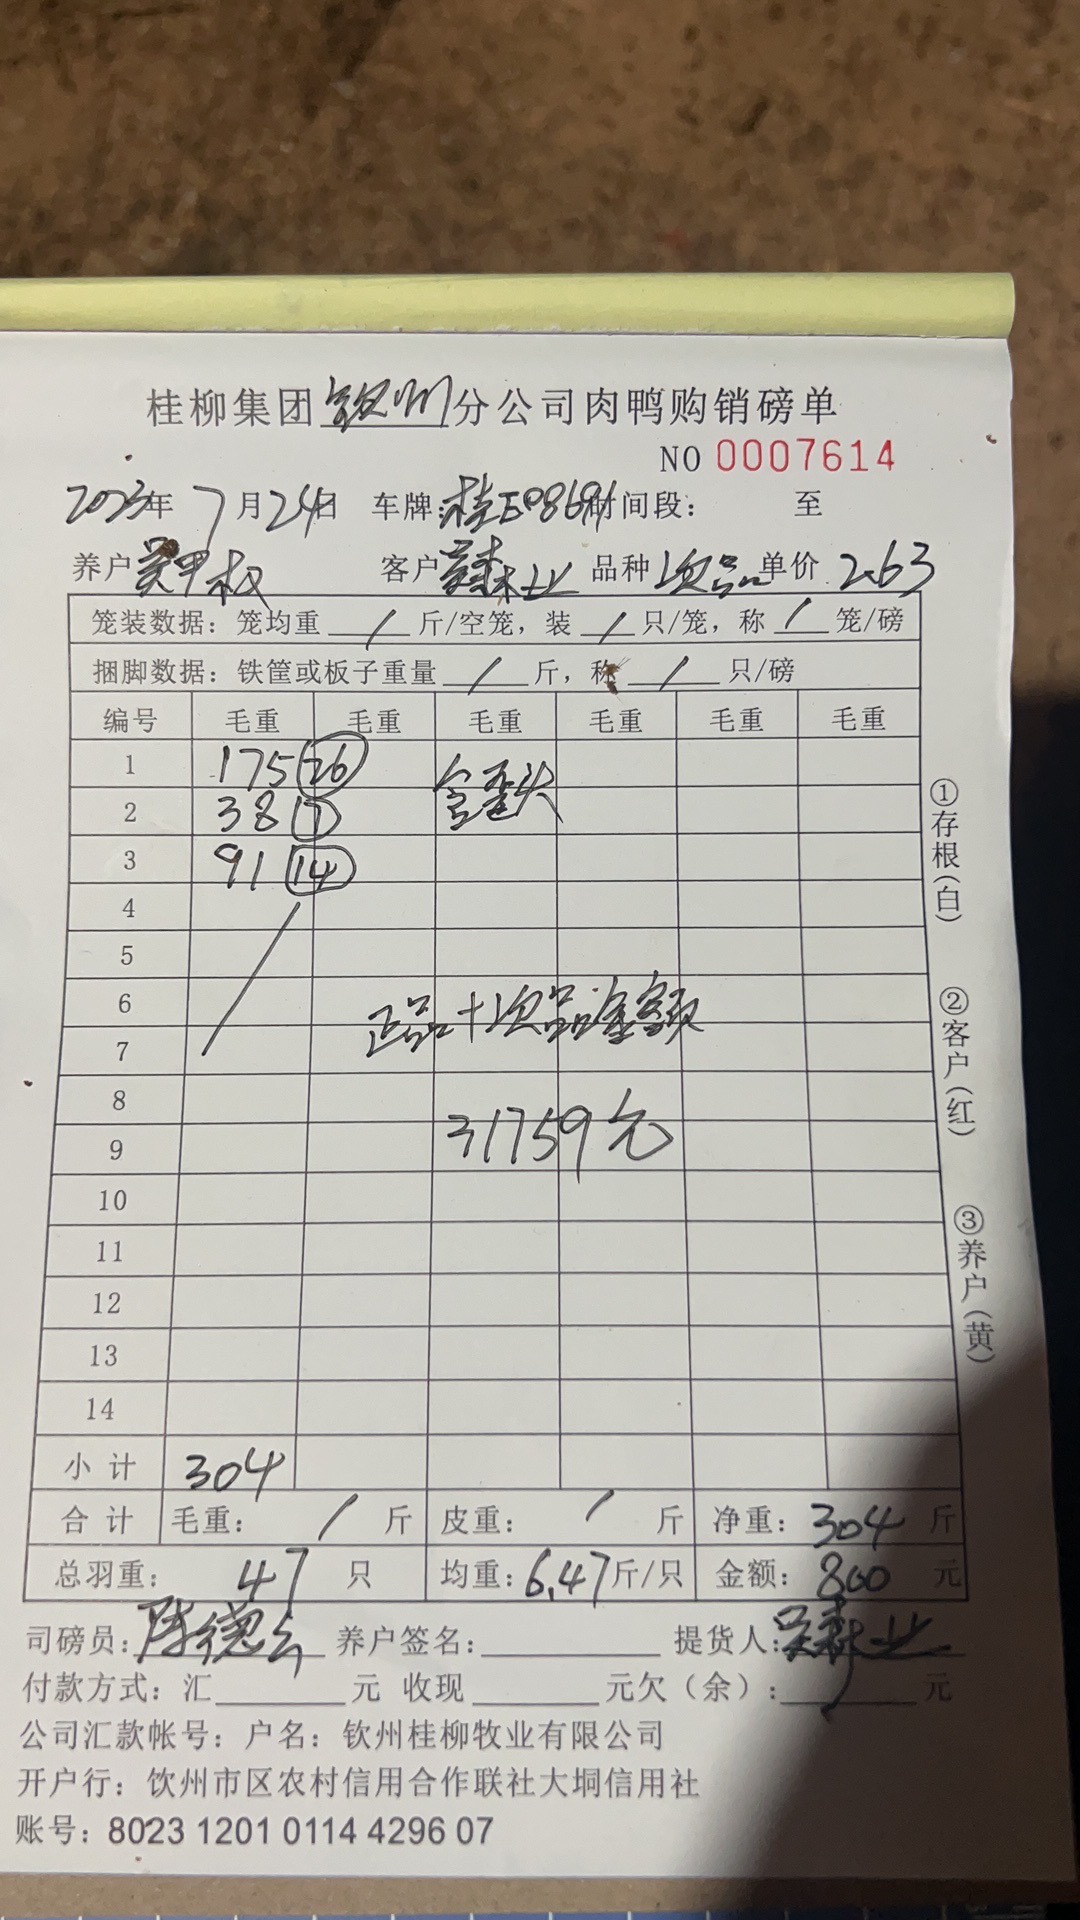 桂柳集团钦州分公司肉鸭购销磅单
NO 0007614
2023年 7月24日 车牌:桂E08691时间段: 至
养户 客户 品种 次品 单价 2.63
笼装数据: 笼均重 / 斤/空笼, 装 / 只/笼, 称 / 笼/磅
捆脚数据: 铁筐或板子重量 / 斤, 称 / 只/磅
编号 毛重 毛重 毛重 毛重 毛重 毛重
1 175 26 含歪头
2 38 7
3 91 14
4
5
6 正品+次品金额
7
8
9 31759元
10
11
12
13
14
小计 304
合计 毛重: / 斤 皮重: / 斤 净重: 304 斤
总羽重: 47 只 均重: 6.47斤/只 金额: 800 元
司磅员: 养户签名: 提货人:
付款方式: 汇 元 收现 元欠(余): 元
公司汇款帐号: 户名: 钦州桂柳牧业有限公司
开户行: 饮州市区农村信用合作联社大垌信用社
账号: 8023 1201 0114 4296 07
①存根(白)
②客户(红)
③养户(黄)